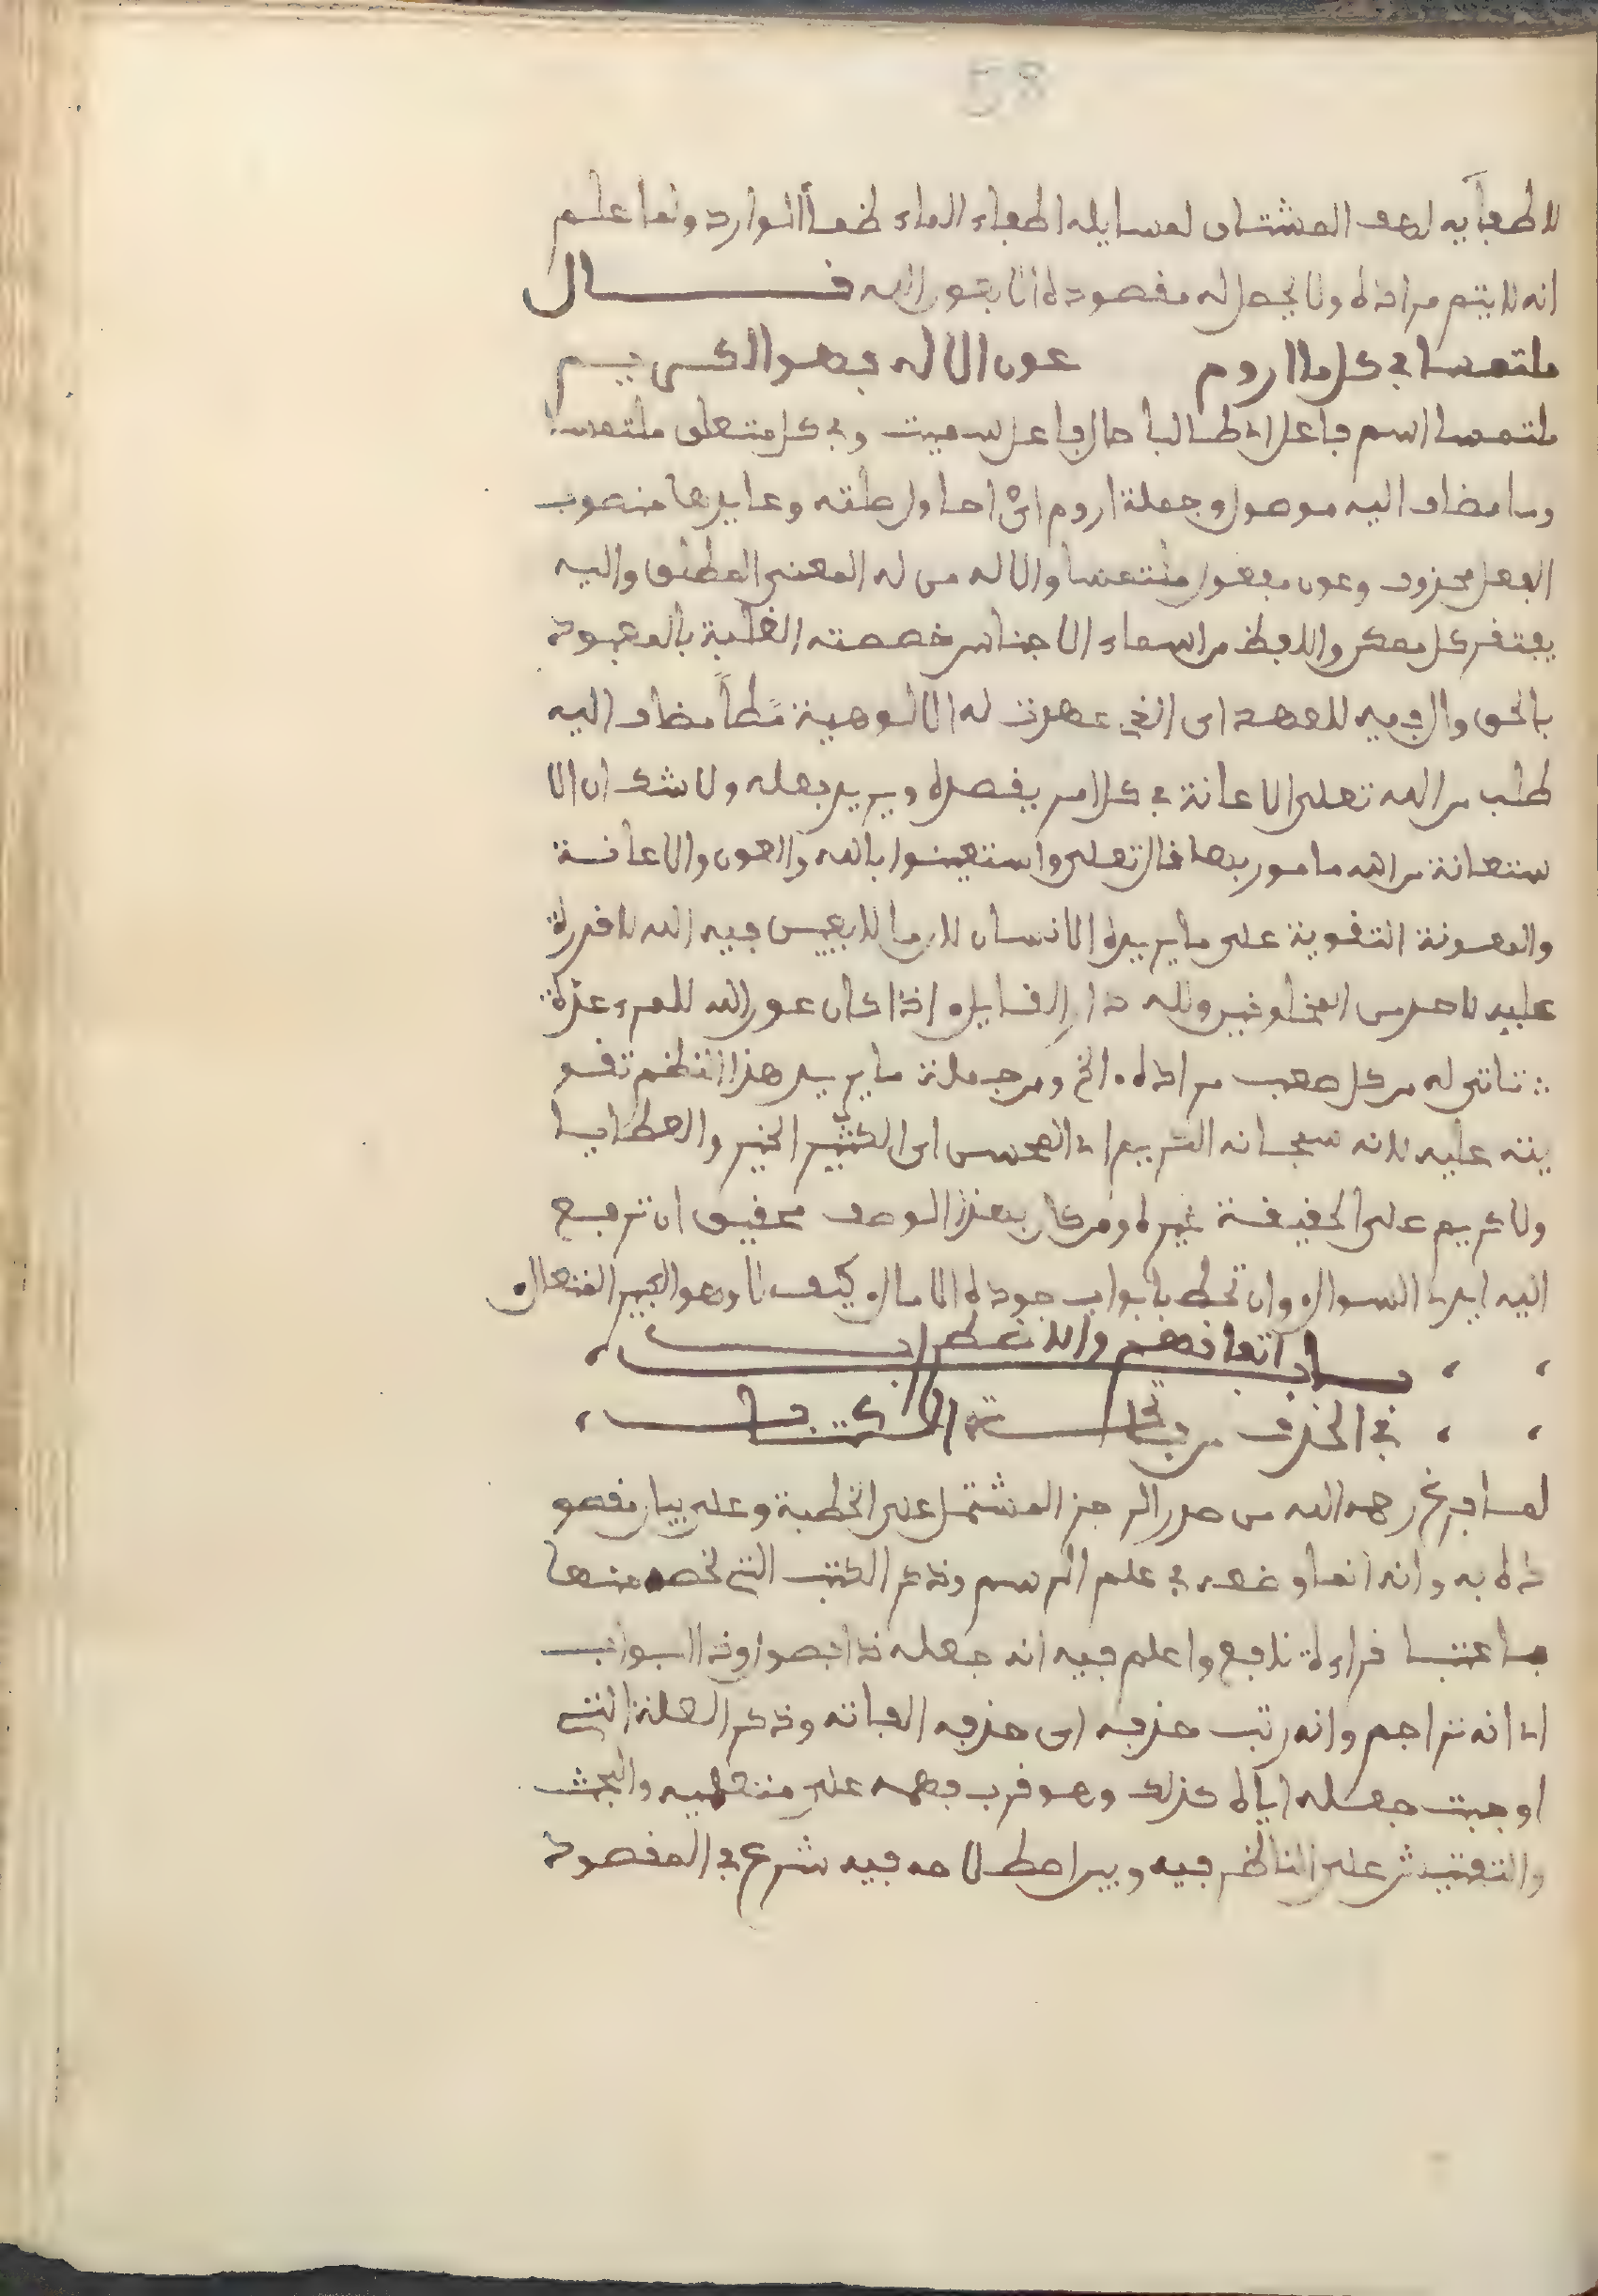 58
لاطفأ به لهف المشتاق لمسايله اطفاء الماء ظمأ الوارد ولما علم
انه لا يتم مراده ولا يحصل له مقصوده الا بعون الله قال
ملتمسا في كل ما اروم عون الاله فهو الكريم
ملتمسا اسم فاعل اي طالبا حال فاعل سميت وفي كل متعلق ملتمسا
وما مضاف اليه موصول وجملة اروم اي احاول صلته وعايدها منصوب
الفعل محذوف وعون مفعول ملتمسا والاله من له المعنى المطلق واليه
يفتقر كل ممكن واللفظ من اسماء الاجناس خصصته الغلبة بالمعبود
بالحق وال فيه للعهد اى الذي عهدت له الالوهية مضاف اليه
طلب من الله تعلى الاعانة في كل امر يقصده ويريد فعله ولا شك ان الا
ستعانة من الله مامور بها قال تعلى واستعينوا بالله والعون والاعانة
والمعونة التقوية على ما يريده الانسان لان ما لا يعين فيه الله لا قدرة
عليه لاحد من المخلوقين ولله در القايل اذا كان عون الله للمرء عدة
تاتى له من كل صعب مراده الخ ومن جملة ما يريد هذا النظم تقو
يته عليه لانه سبحانه الكريم اي المحسن اى الكثير الخير والعطايا
ولا كريم على الحقيقة غيره ومن كان بهذا الوصف حقيق ان ترفع
اليه ايدي السوال وان تحط بابواب جوده الامال كيف لا وهو الكبير المتعال
باب اتفاقهم والاضطراب
في الحذف من فاتحة الكتاب
لما فرغ رحمه الله من صدر الرجز المشتمل على الخطبة وعلى بيان مقصو
ده به وانه انما وضعه في علم الرسم وذكر الكتب التي لخصه منها
معتنيا قراءة نافع واعلم فيه انه جعله ذا فصول وذا ابواب
اي انه تراجم وانه رتب حذفه اى حذف الفاته وذكر العلة التي
اوجبت جعله اياه كذلك وهو قرب فهمه على متعلميه والبحث
والتفتيش على الناظر فيه وبين اصطلاحه فيه شرع في المقصود